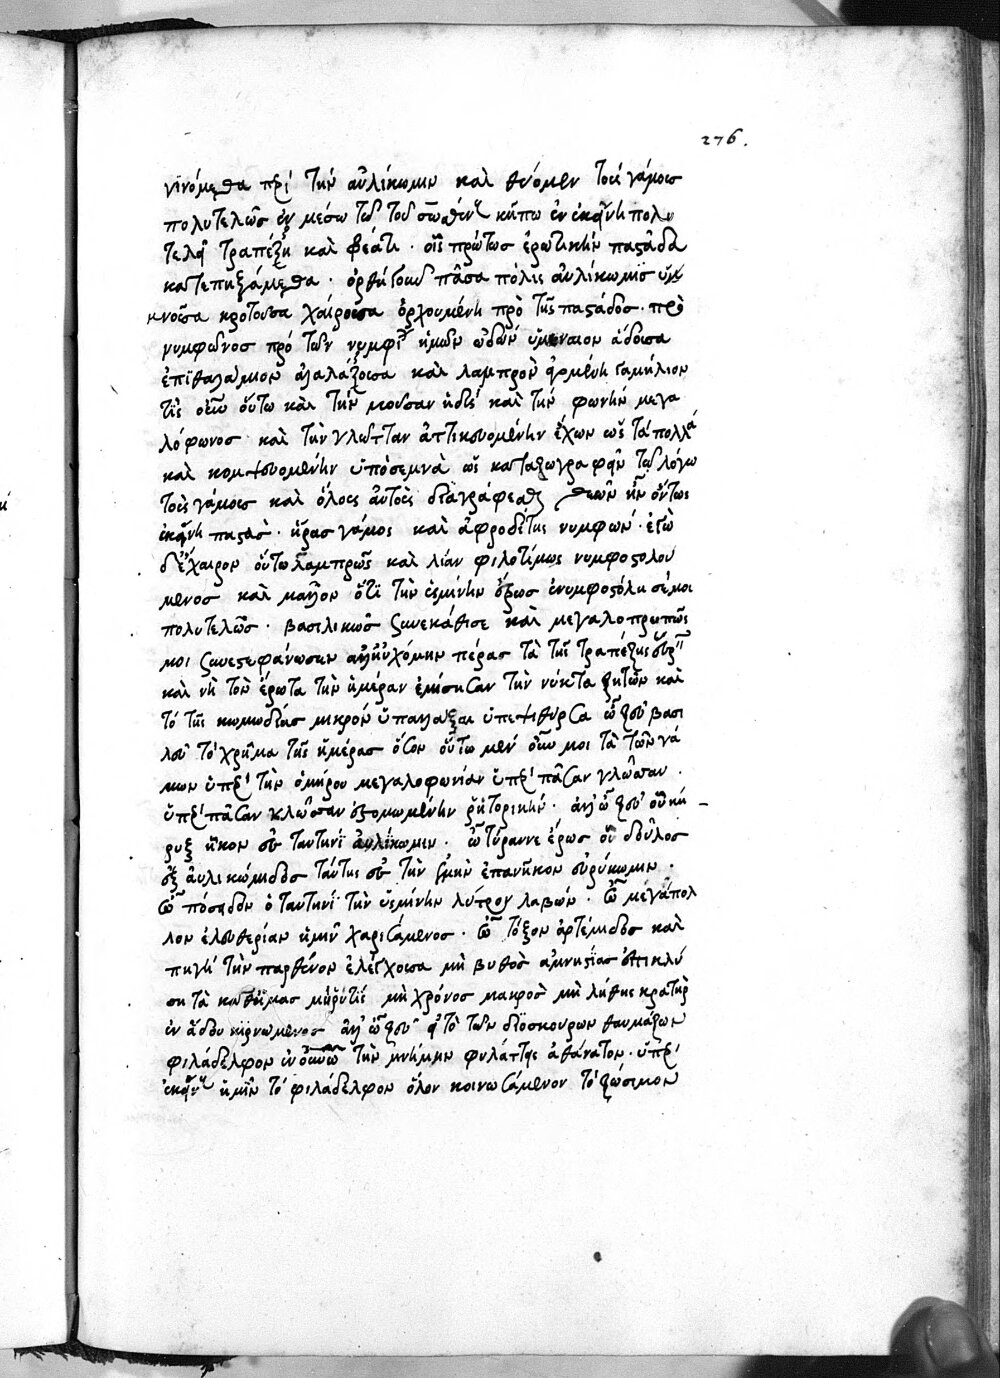 276.
γινόμεθα περὶ τὴν αὐλίκωμιν καὶ θύομεν τοὺς γάμους
πολυτελῶς ἐν μέσω τῶ τοῦ σωσθένους κήπω ἐν ἐκείνη πολυ
τελεῖ τραπέζη καὶ φρέατι · οἷς πρώτως ἐρωτικὴν παστάδα
κατεπηξάμεθα · ὀρθὴ γοῦν πᾶσα πόλις αὐλίκωμις ὑμ
νοῦσα κροτοῦσα χαίρουσα ὀρχουμένη πρὸ τῆς παστάδος · πρὸ
νυμφῶνος πρό τῶν νυμφίων ἡμῶν ὠδὴν ὑμέναιον ἄδουσα
ἐπιθαλάμιον ἀλαλάζουσα καὶ λαμπρὸν ἠρμένη γαμήλιον
τίς οὖν οὕτω καὶ τὴν μοῦσαν ἡδὺς καὶ τὴν φωνὴν μεγα
λόφωνος καὶ τὴν γλῶτταν ἀττικευομένην ἔχων ὡς τὰ πολλὰ
καὶ κομψευομένην ὑπόσεμνα ὡς καταζωγραφεῖν τῶ λόγω
τοὺς γάμους καὶ ὅλους αὐτοὺς διαγράφεσθαι θεῶν ἦν ὄντως
ἐκείνη παστὰς · ἥρας γάμος καὶ ἀφροδίτης νυμφών · ἐγὼ
δ' ἔχαιρον οὕτω λαμπρῶς καὶ λίαν φιλοτίμως νυμφοστολού
μενος καὶ μᾶλλον ὅτι τὴν ὑσμίνην ὁ ἔρως ἐνυμφοστόλησέ μοι
πολυτελῶς · βασιλικῶς συνεκάθισε καὶ μεγαλοπρεπῶς
μοι συνεστεφάνωσεν ἀλλ' ηὐχόμην πέρας τὰ τῆς τραπέζης εὑρεῖν
καὶ νὴ τὸν ἔρωτα τὴν ἡμέραν ἐμίσησαν τὴν νύκτα ζητῶν καὶ
τὸ τῆς κωμωδίας μικρὸν ὑπαλλάξαι ὑπεψιθύρισα ὦ ζεῦ βασι
λεῦ τὸ χρῆμα τῆς ἡμέρας ὅσον οὕτω μὲν οὖν μοι τὰ τῶν γά
μων ὑπὲρ τὴν ὁμήρου μεγαλοφωνίαν ὑπὲρ πᾶσαν γλῶτταν ·
ὑπὲρ πᾶσαν γλῶτταν ἐστομωμένην ῥητορικὴν · ἀλλ' ὦ ζεῦ οὗ κή
ρυξ ἧκον εὖ ταυτηνὶ αὐλίκωμιν · ὦ τύραννε ἔρως οὗ δοῦλος
ἐξ αὐλικώμιδος ταύτης εὖ τὴν ἐμὴν ἐπανῆκον εὐρύκωμιν ·
ὦ πόσειδον ὁ ταυτηνὶ τὴν ὑσμίνην λύτρον λαβὼν · ὦ μέγ' ἄπολ
λον ἐλευθερίαν ἡμῖν χαρισάμενος · ὦ τόξον ἀρτέμιδος καὶ
πηγὴ τὴν παρθένον ἐλέγχουσα μὴ βυθὸς ἀμνηστίας ἐπικλύ
ση τὰ καθ' ἡμᾶς μὴ χρόνος μακρὸς μὴ λήθης κρατὴρ
ἐν ἅδου κιρνώμενος ἀλλ' ὦ ζεῦ εἰ τὸ τῶν διοσκούρων θαυμάζων
φιλάδελφον ἐν οὐρανῶ τὴν μνήμην φυλάττεις ἀθάνατον · ὑπὲρ
ἐκείνους ἡμῖν τὸ φιλάδελφον ὅλον κοινωσάμενον τὸ ζώσιμον